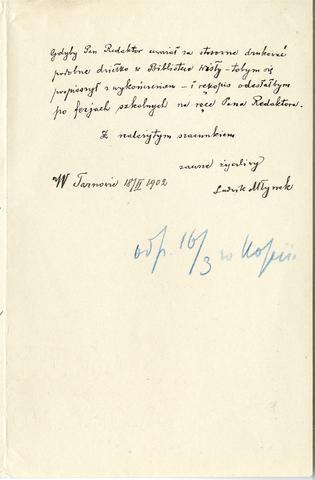 Gdyby Pan Redaktor uważał za stosowne drukować
podobne dziełko w Bibliotece Wisły – tobym się
pospieszył z wykończeniem – i rękopis odesłałbym
po feryach szkolnych na ręce Pana Redaktora.
Z należytym szacunkiem
zawsze życzliwy
W Tarnowie 18/II 1902
Ludwik Młynek
odp. 16/3 w kopii